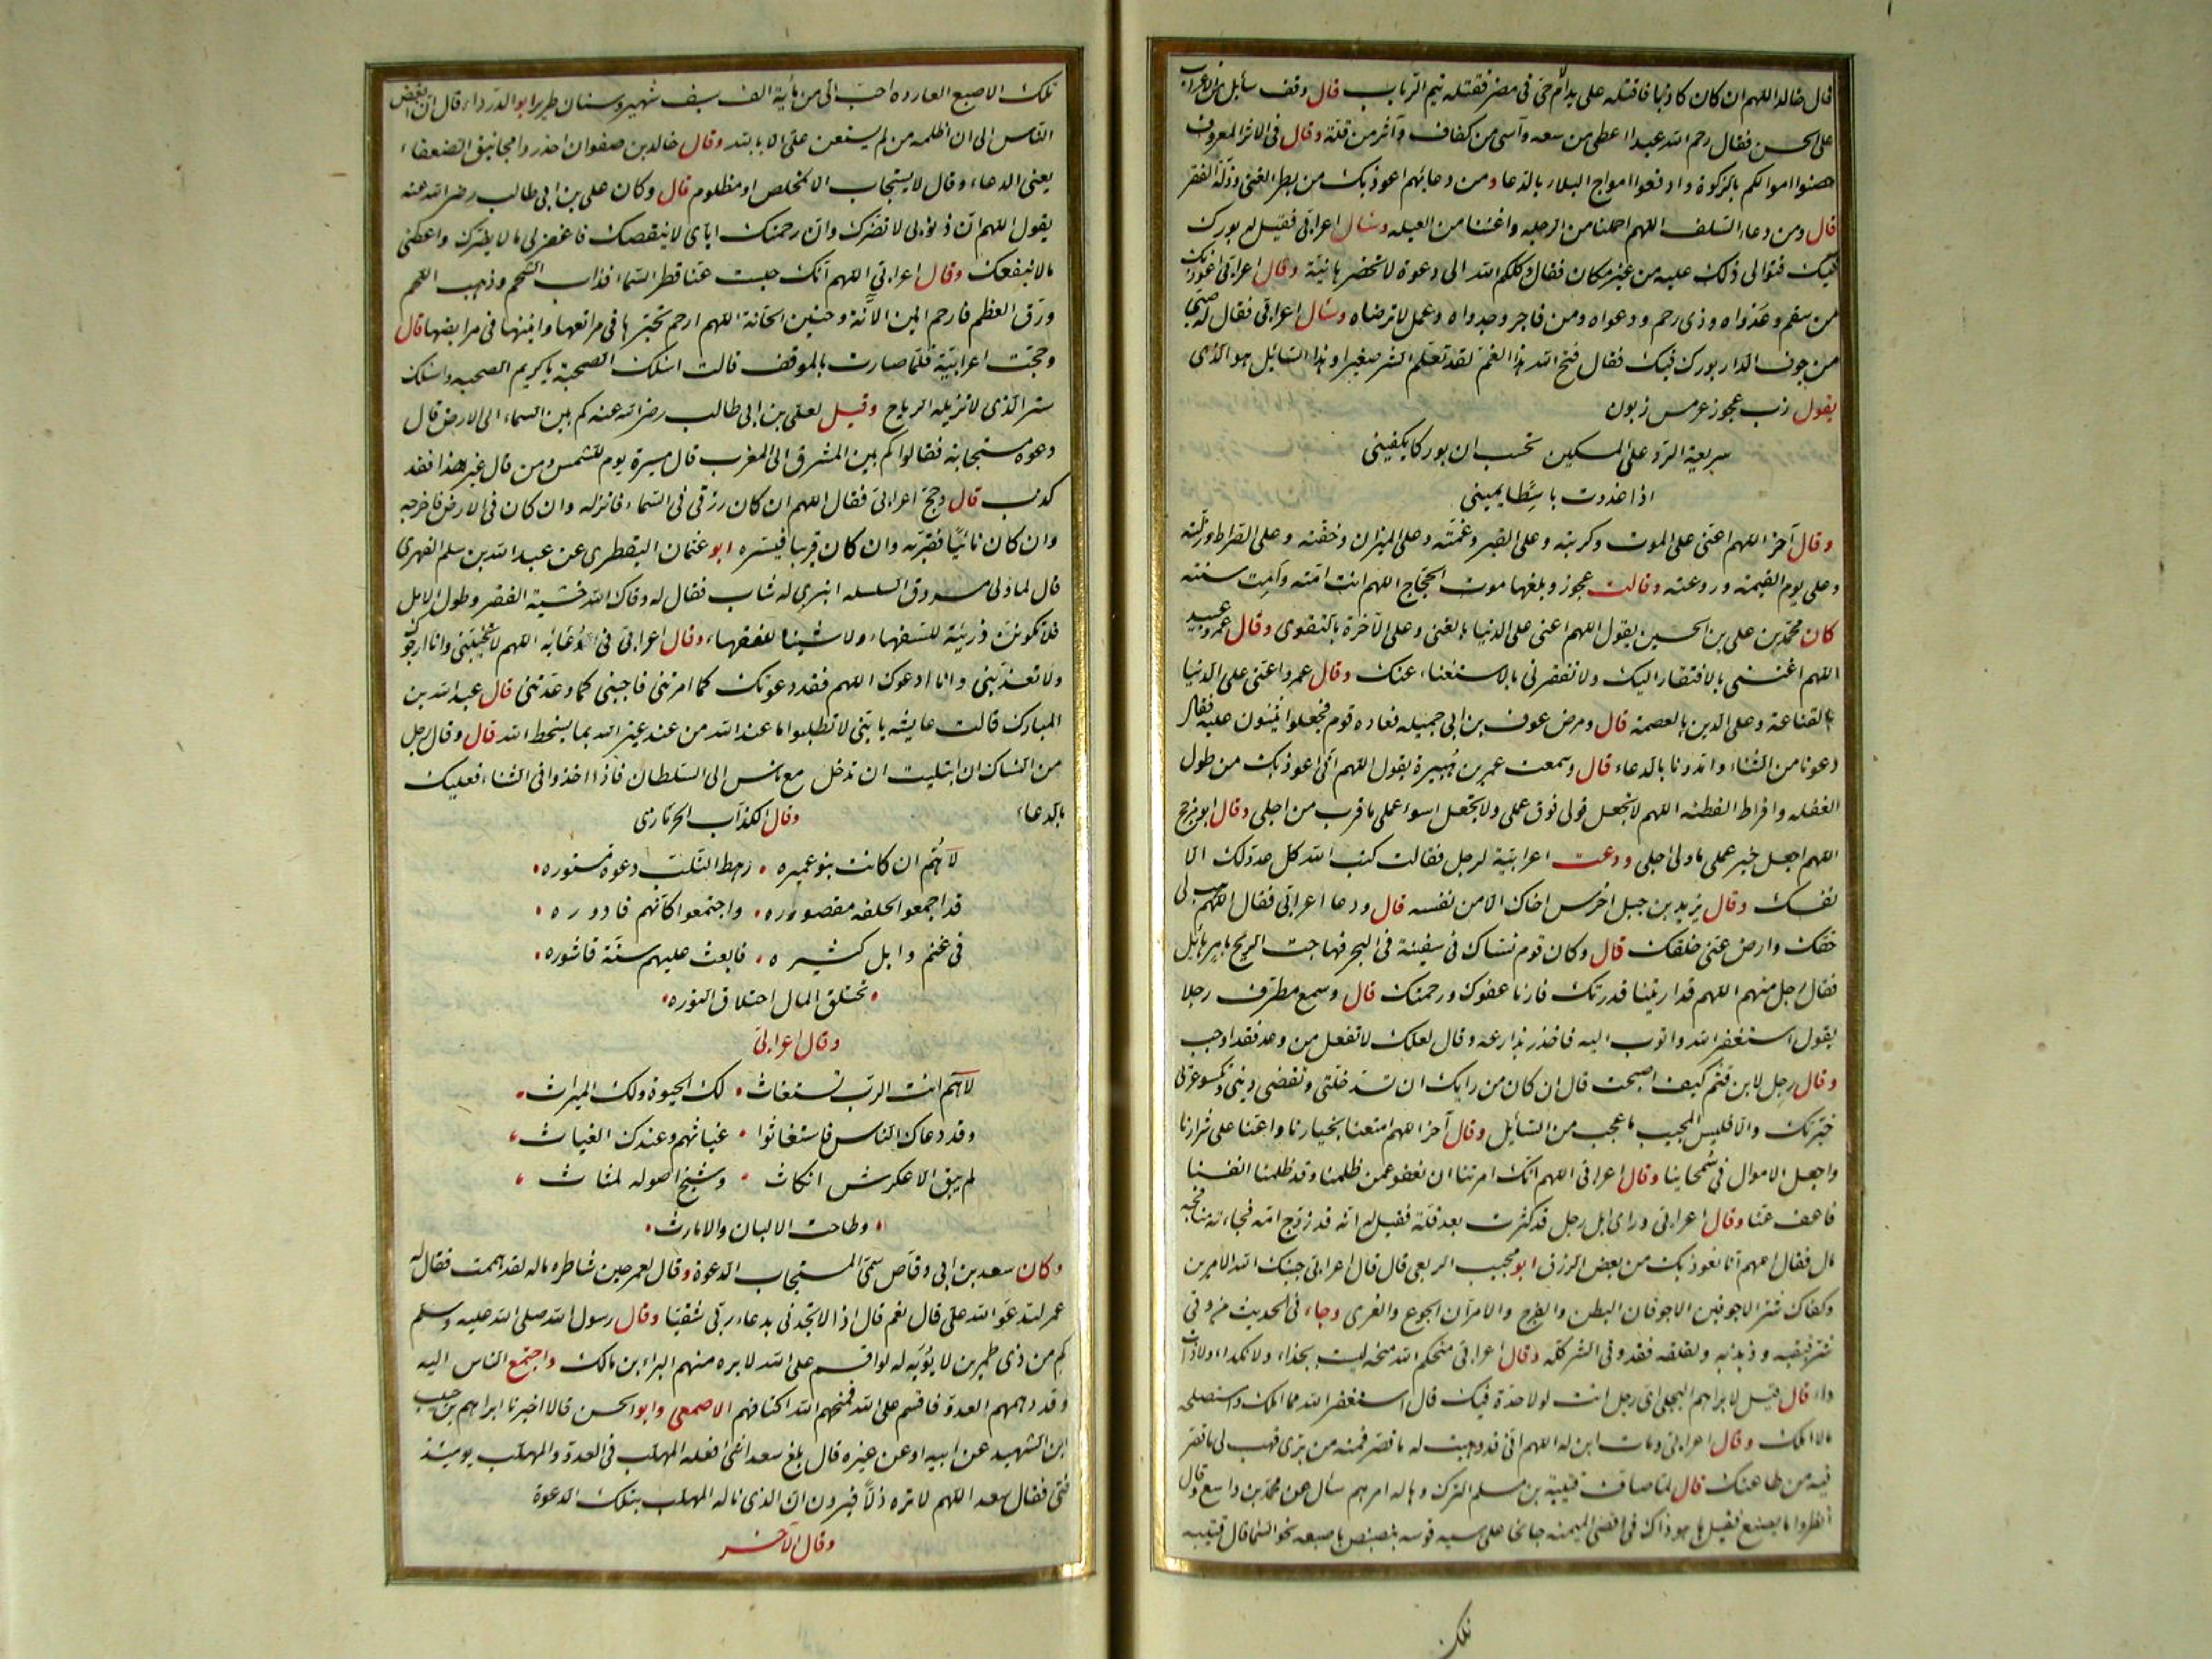 قال خالد اللهم ان كان كاذبا فاقتله على يد الأم حى فى مضر فقتله تيم الرباب قال وقف سائل من الاعراب
على الحسن فقال رحم الله عبدا اعطى من سعه وآسى من كفاف وآثر من قلة وقال فى الاثر المعروف
حصنوا اموالكم بالزكوة وادفعوا امواج البلاء بالدعا ومن دعائهم اعوذ بك من بطر الغنى وذلة الفقر
قال ومن دعاء السلف اللهم احملنا من الرجله واغننا من العيله وسال اعرابى فقيل له بورك
فيك فتوالى ذلك عليه من غير مكان فقال وكلكم الله الى دعوة لا تحضرها نيّة وقال اعرابى اعوذ بك
من سقم وعدواه وذى رحم ودعواه ومن فاجر وجدواه وعمل لا ترضاه وسال اعرابى فقال له صبى
من جوف الدار بورك فيك فقال قبح الله هذا الفم لقد تعلم الشر صغيرا وهذا السائل هو الذى
يقول رب عجوز عرمس زبون
سريعة الرد على المسكين تحسب ان بوركا يكفينى
اذا غدوت باسطا يمينى
وقال آخر اللهم اعنى على الموت وكربته وعلى القبر وغمته وعلى الميزان وخفته وعلى الصراط وزلته
وعلى يوم القيمة وروعته وقالت عجوز وبلغها موت الحجاج اللهم انت امته وامت سنته
كان محمد بن على بن الحسين يقول اللهم اعنى على الدنيا بالغنى وعلى الآخرة بالتقوى وقال عمرو بن عبيد
اللهم اغننى بالافتقار اليك ولا تفقرنى بالاستغناء عنك وقال عمرو اعنى على الدنيا
بالقناعة وعلى الدين بالعصمة قال ومرض عوف بن ابى جميله فعاده قوم فجعلوا يثنون عليه فقال
دعونا من الثناء وامدونا بالدعاء قال وسمعت عمر بن هبيرة يقول اللهم انى اعوذ بك من طول
الغفله وافراط الفطنه اللهم لا تجعل قولى فوق عملى ولا تجعل اسوا عملى ما قرب من اجلى وقال ابو مرجح
اللهم اجعل خير عملى ما ولى اجلى ودعت اعرابية لرجل فقالت كبت الله كل عدو لك الا
نفسك وقال يزيد بن جبل احرس اخاك الا من نفسه قال ودعا اعرابى فقال اللهم هب لى
حقك وارض عنى خلقك قال وكان قوم نساك فى سفينة فى البحر فهاجت الريح بامر هائل
فقال رجل منهم اللهم قد اريتنا قدرتك فارنا عفوك ورحمتك قال وسمع مطرف رجلا
يقول استغفر الله واتوب اليه فاخذ بذارعه وقال لعلك لا تفعل من وعد فقد اوجب
وقال رجل لابن قثم كيف اصبحت قال ان كان من رايك ان تسد خلتى وتقضى دينى وتكسو عريى
خبرتك والا فليس المجيب باعجب من السائل وقال آخر اللهم امتعنا بخيارنا واعنا على شرارنا
واجعل الاموال فى سمحاينا وقال اعرابى اللهم انك امرتنا ان نعفو عمن ظلمنا وقد ظلمنا انفسنا
فاعف عنا وقال اعرابى وراى ابل رجل قد كثرت بعد قلة فقيل له انه قد زوج امه فجاءته بنافجة
مال فقال اللهم انا نعوذ بك من بعض الرزق ابو مجيب الربعى قال قال اعرابى جنبك الله الامرين
وكفاك شر الاجوفين الاجوفان البطن والفرج والامران الجوع والعرى وجاء فى الحديث من وقى
شر قبقبه وذبذبه ولقلقه فقد وقى الشر كله وقال اعرابى منحكم الله منحه ليست بجداء ولا نكداء ولا ذات
داء قال قيل لابراهيم البجلى اى رجل انت لولا حدة فيك قال استغفر الله مما املك واستصلحه
ما لا املك وقال اعرابى ومات ابن له اللهم انى قد وهبت له ما قصر فيه من برى فهب لى ما قصر
فيه من طاعتك قال لما صاف قتيبة بن مسلم الترك وهاله امرهم سال عن محمد بن واسع وقال
انظروا ما يصنع فقيل ها هو ذاك فى اقصى الميمنة جانحا على سية قوسه ينضنض باصبعه نحو السما قال قتيبه
تلك
تلك الاصبع الفارده احب الى من مائة الف سيف شهير وسنان طرير ابو الدرداء قال ان ابغض
الناس الى ان اظلمه من لم يستعن على الا بالله وقال خالد بن صفوان احذروا مجانيق الضعفاء
يعنى الدعاء وقال لا يستجاب الا لمخلص او مظلوم قال وكان على بن ابى طالب رضى الله عنه
يقول اللهم ان ذنوبى لا تضرك وان رحمتك اياى لا ينقصك فاغفر لى ما لا يضرك واعطنى
ما لا ينفعك وقال اعرابى اللهم انك حبست عنا قطر السماء فذاب الشحم وذهب اللحم
ورق العظم فارحم انين الآنة وحنين الحانة اللهم ارحم تحيرها فى مراتعها وانينها فى مرابضها قال
وحجت اعرابية فلما صارت بالموقف قالت اسئلك الصحبة يا كريم الصحبه واسئلك
ستر الذى لا تزيله الرياح وقيل لعلى بن ابى طالب رضى الله عنه كم بين السماء الى الارض قال
دعوه مستجابة فقالوا كم بين المشرق الى المغرب قال مسيرة يوم للشمس ومن قال غير هذا فقد
كذب قال وحج اعرابى فقال اللهم ان كان رزقى فى السماء فانزله وان كان فى الارض فاخرجه
وان كان نائيا فقربه وان كان قريبا فيسره ابو عثمان البقطرى عن عبد الله بن سلم الفهرى
قال لما ولى مسروق السلسله انبرى له شاب فقال له وقاك الله خشية الفقر وطول الامل
فلا تكونن ذرئة للسفهاء ولا شينا للفقهاء وقال اعرابى فى دعائه اللهم لا تخيبنى وانا ارجوك
ولا تعذبنى وانا ادعوك اللهم فقد دعوتك كما امرتنى فاجبنى كما وعدتنى قال عبد الله بن
المبارك قالت عايشه يا بنى لا تطلبوا ما عند الله من عند غير الله بما يسخط الله قال وقال رجل
من النساك ان ابتليت ان تدخل مع ناس الى السلطان فاذا اخذوا فى الثناء فعليك
بالدعاء وقال الكذاب الحرمازى
لاهم ان كانت بنو عميره رهط التلب دعوة مستوره
قد اجمعوا لحلفه مقصوره واجتمعوا كانهم قاروره
فى غنم وابل كثيره فابعث عليهم سنة قاشوره
تحتلق المال احتلاق النوره
وقال اعرابى
لاهم انت الرب تستغاث لك الحيوة ولك الميراث
وقد دعاك الناس فاستغاثوا غياثهم وعندك الغياث
لم يبق الا عكرش انكاث وشيح اصوله لمثاث
وطاحت الالبان والامارث
وكان سعد بن ابى وقاص سمى المستجاب الدعوة وقال لعمر حين شاطره ماله لقد هممت فقال له
عمر لتدعو الله على قال نعم قال اذا لا تجدنى بدعاء ربى شقيا وقال رسول الله صلى الله عليه وسلم
كم من ذى طمرين لا يؤبه له لو اقسم على الله لابره منهم البراء بن مالك واجتمع الناس اليه
وقد دهمهم العدو فاقسم على الله فمنحهم الله اكتافهم الاصمعى وابو الحسن قالا اخبرنا ابراهيم بن حبيب
ابن الشهيد عن ابيه او عن غيره قال بلغ سعدا شى افعله المهلب فى العدو والمهلب يومئذ
فتى فقال سعد اللهم لا تره ذلا فيرون ان الذى ناله المهلب بتلك الدعوة
وقال الآخر